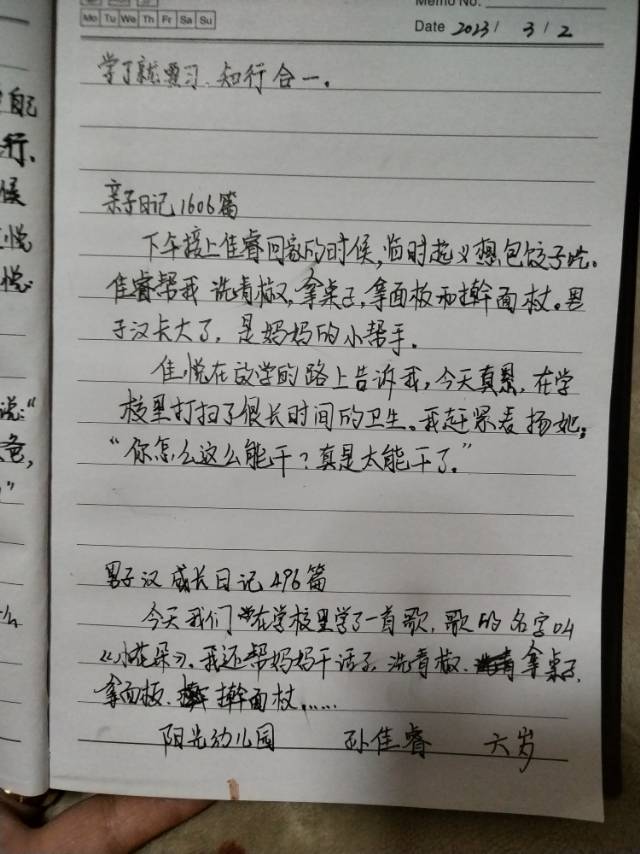 Memo No.
Mo Tu We Th Fr Sa Su
Date 2023 / 3 / 2
学了就要习、知行合一。
自己
行、
候
悦
悦:
说:“
色,
”
亲子日记1606篇
下午接上佳睿回家的时候,临时起义想包饺子吃。
佳睿帮我洗青椒,拿桌子,拿面板和擀面杖。男
子汉长大了,是妈妈的小帮手。
佳悦在放学的路上告诉我,今天真累,在学
校里打扫了很长时间的卫生。我赶紧表扬她:
“你怎么这么能干?真是太能干了。”
男子汉成长日记496篇
今天我们在学校里学了一首歌,歌的名字叫
《小花朵》。我还帮妈妈干活了,洗青椒、拿桌子、
拿面板、擀面杖……
阳光幼儿园 孙佳睿 六岁